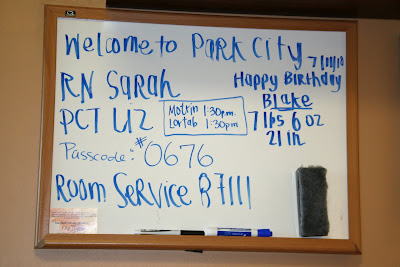 Welcome to Park City 7/11/10
RN Sarah
Happy Birthday
Blake
7 lbs 6 oz
21 in
PCT Liz
Motrin 1:30pm.
Lortab 1:30pm
Passcode: #0676
Room Service 87111